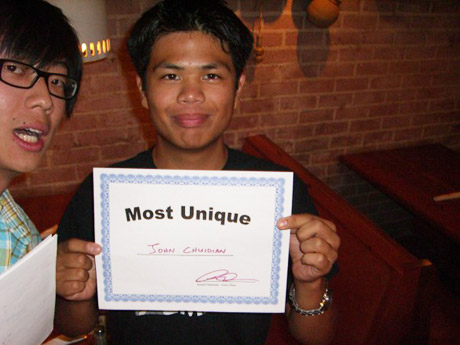 Most Unique
JOHN CHUIDIAN